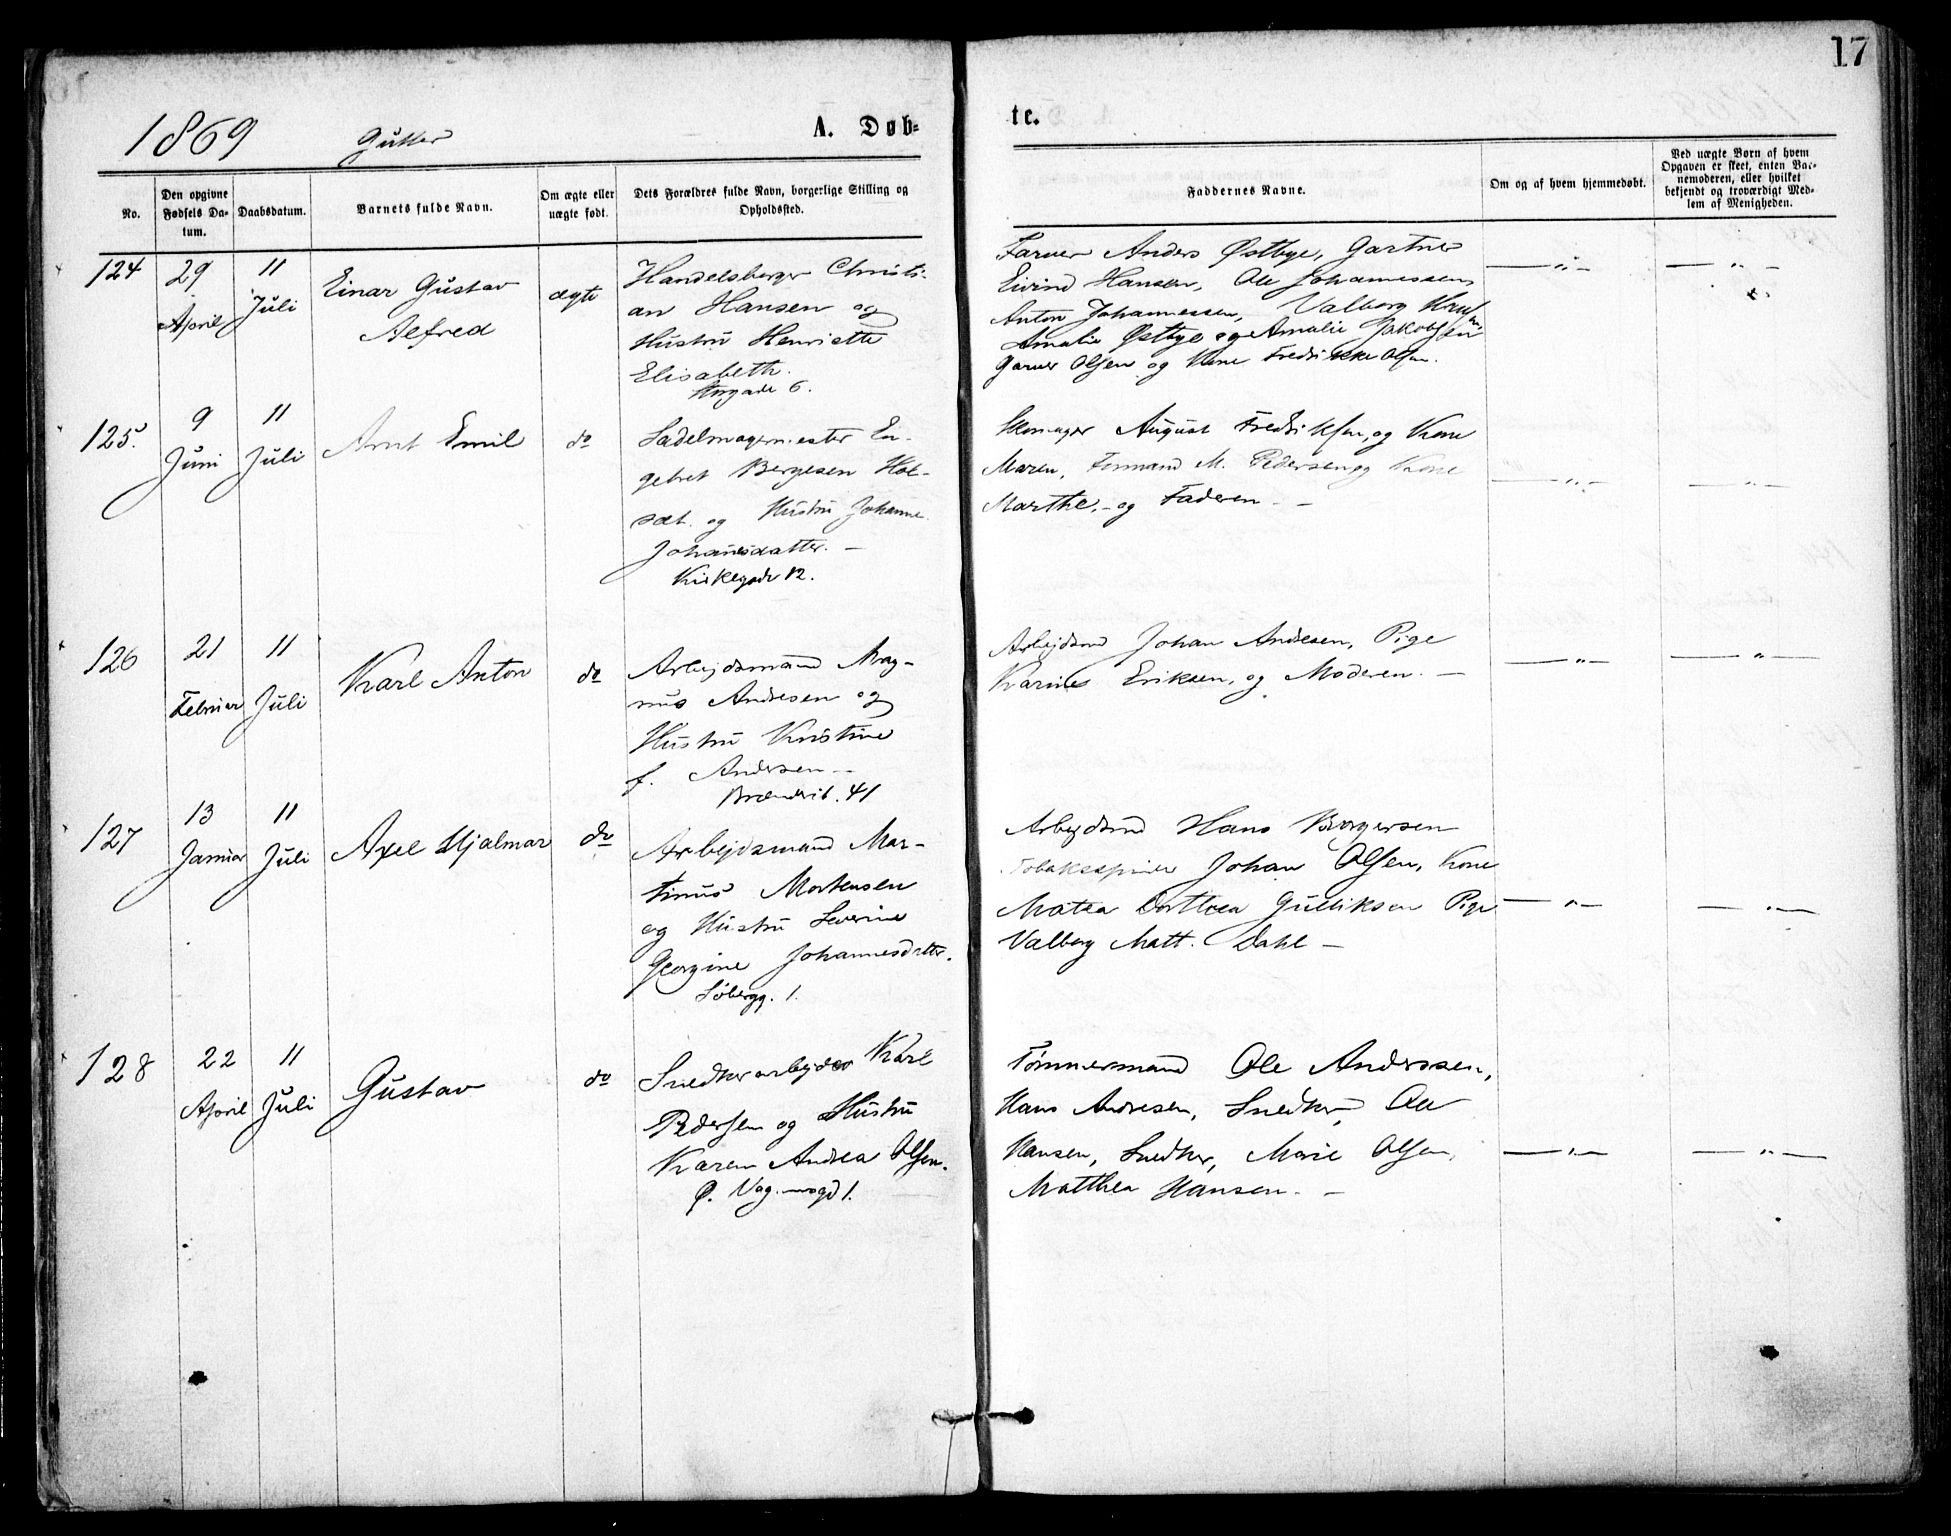 17
1869 Gutter A. Døb-
te.
No.
Den opgivne
Fødsels Da-
tum.
Daabsdatum.
Barnets fulde Navn.
Om ægte eller
uægte født.
Dets Forældres fulde Navn, borgerlige Stilling og
Opholdssted.
Faddernes Navne.
Om og af hvem hjemmedøbt.
Ved uægte Børn af hvem
Opgaven er skeet, enten Bar-
nemoderen, eller hvilket
bekjendt og troværdigt Med-
lem af Menigheden.
124
29
April
11
Juli
Einar Gustav
Alfred
ægte
Handelsborger Christi-
an Hansen og
Hustru Henriette
Elisabeth.
Storgade 6.
Farver Anders Østbye, Gartner
Eivind Hansen, Ole Johannessen,
Anton Johannessen, Valborg
Amalie Østbye og Amalie Jakobsen
Garver Olsen og Kone Fredrikke Olsen.
— " —
— " —
125.
9
Juni
11
Juli
Arnt Emil
do
Sadelmagermester En-
gebret Bergesen Hol-
sæt. og Hustru Johanne
Johannesdatter. —
Kirkegade 12.
Skomager August Fredriksen, og Kone
Maren, Formand M. Pedersen og Kone
Marthe, - og Faderen - -
— " —
— " —
126
21
Februar
11
Juli
Karl Anton
do
Arbejdsmand Mag-
nus Andresen og
Hustru Kristine
f. Andersen --
41
Arbejdsmd Johan Andresen, Pige
Karine Eriksen, og Moderen. —
— " —
— " —
127
13
Januar
11
Juli
Axel Hjalmar
do
Arbejdsmand Mar-
tinus Mortensen
og Hustru Severine
Georgine Johannesdatter.
Søbergg. 1.
Arbejdsmd Hans Borgersen
Tobaksspinder Johan Olsen, Kone
Matea Dorthea Gulliksen Pige
Valborg Matt. Dahl —
— " —
— " —
128
22
April
11
Juli
Gustav
do
Snedkerarbejder Karl
Pedersen og Hustru
Karen Andrea Olsen.
Ø. 1.
Tømmermand Ole Anderssen,
Hans Andresen, Snedker, Ole
Hansen, Snedker, Marie Olsen,
Matthea Hansen. —
— " —
— " —